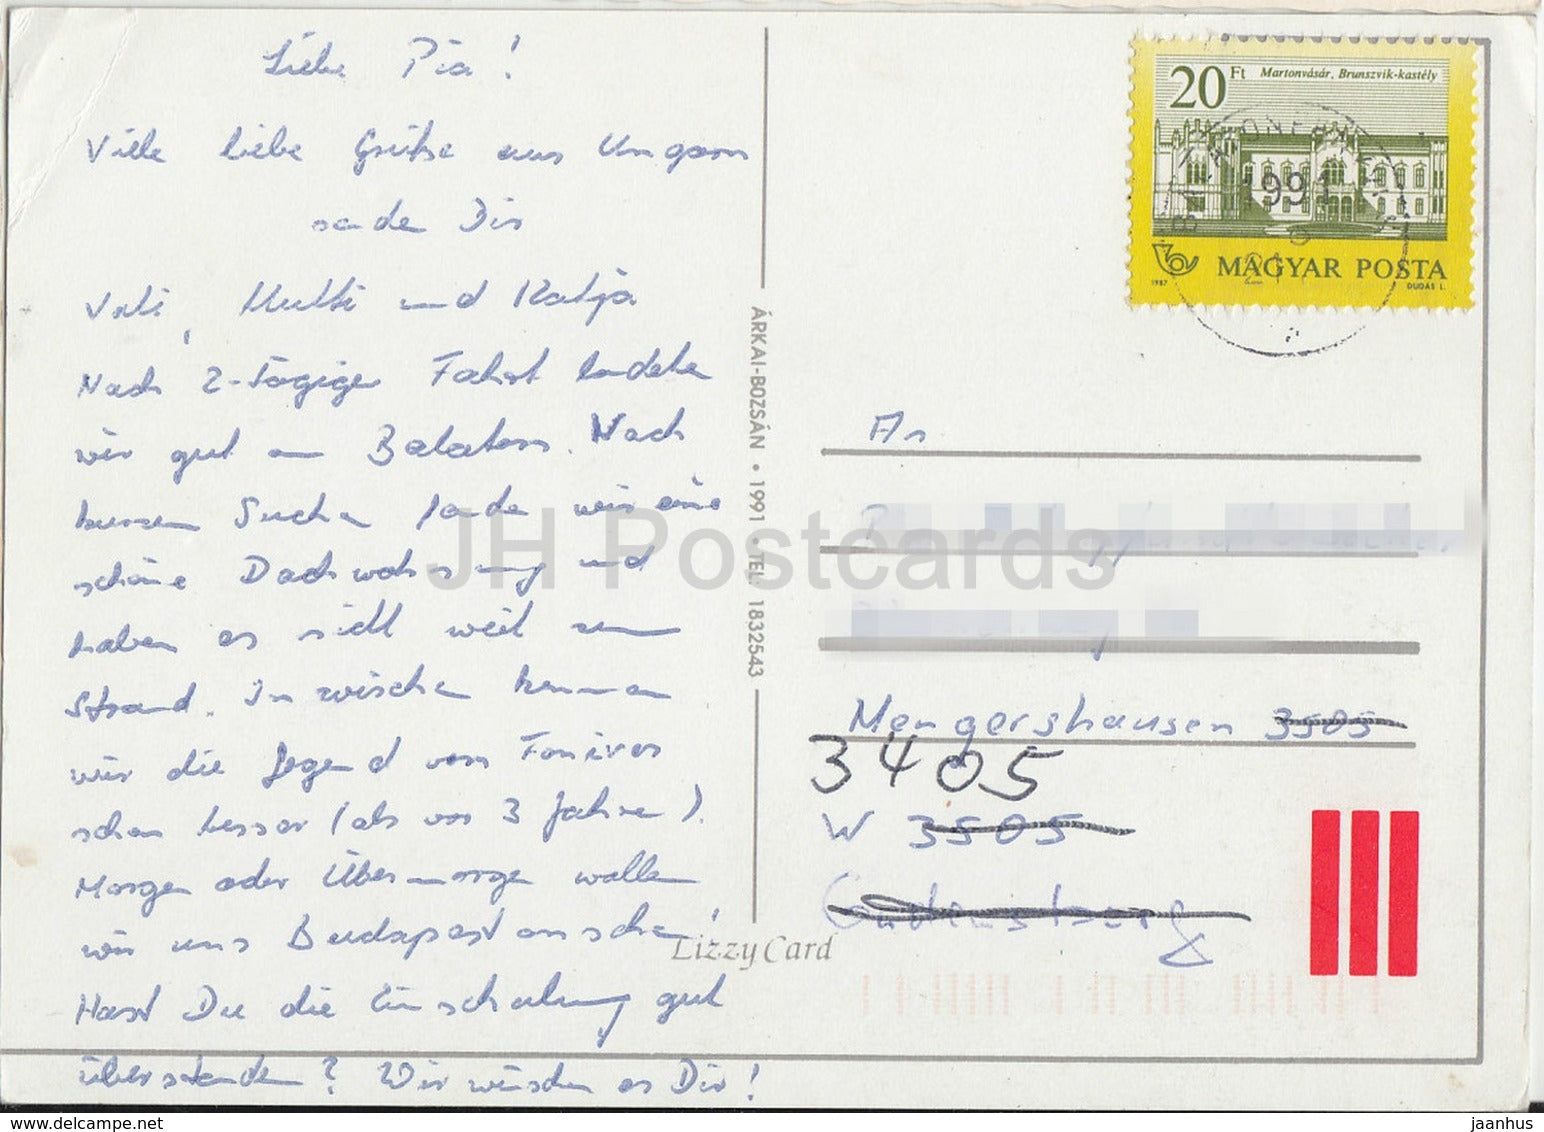 Liebe Pia!
Viele liebe Grüße aus Ungarn
senden Dir
Vati, Mutti und Katja
Nach 2-tägiger Fahrt landeten
wir gut am Balaton. Nach
kurzem Suchen fanden wir eine
schöne Dachwohnung und
haben es nicht weit zum
Strand. Inzwischen kennen
wir die Gegend von Fonyód
schon besser (als vor 3 Jahren).
Morgen oder Übermorgen wollen
wir uns Budapest ansehen!
Hast Du die Einschulung gut
überstanden? Wir wünschen es Dir!
ÁRKAI-BOZSÁN • 1991 • TEL: 1832543
Lizzy Card
20 Ft Martonvásár, Brunszvik-kastély
1991
MAGYAR POSTA
1987 DUDÁS L.
An
Mengershausen 3505
3405
W 3505
Gudensberg
JH Postcards
delcampe.net
jaanhus